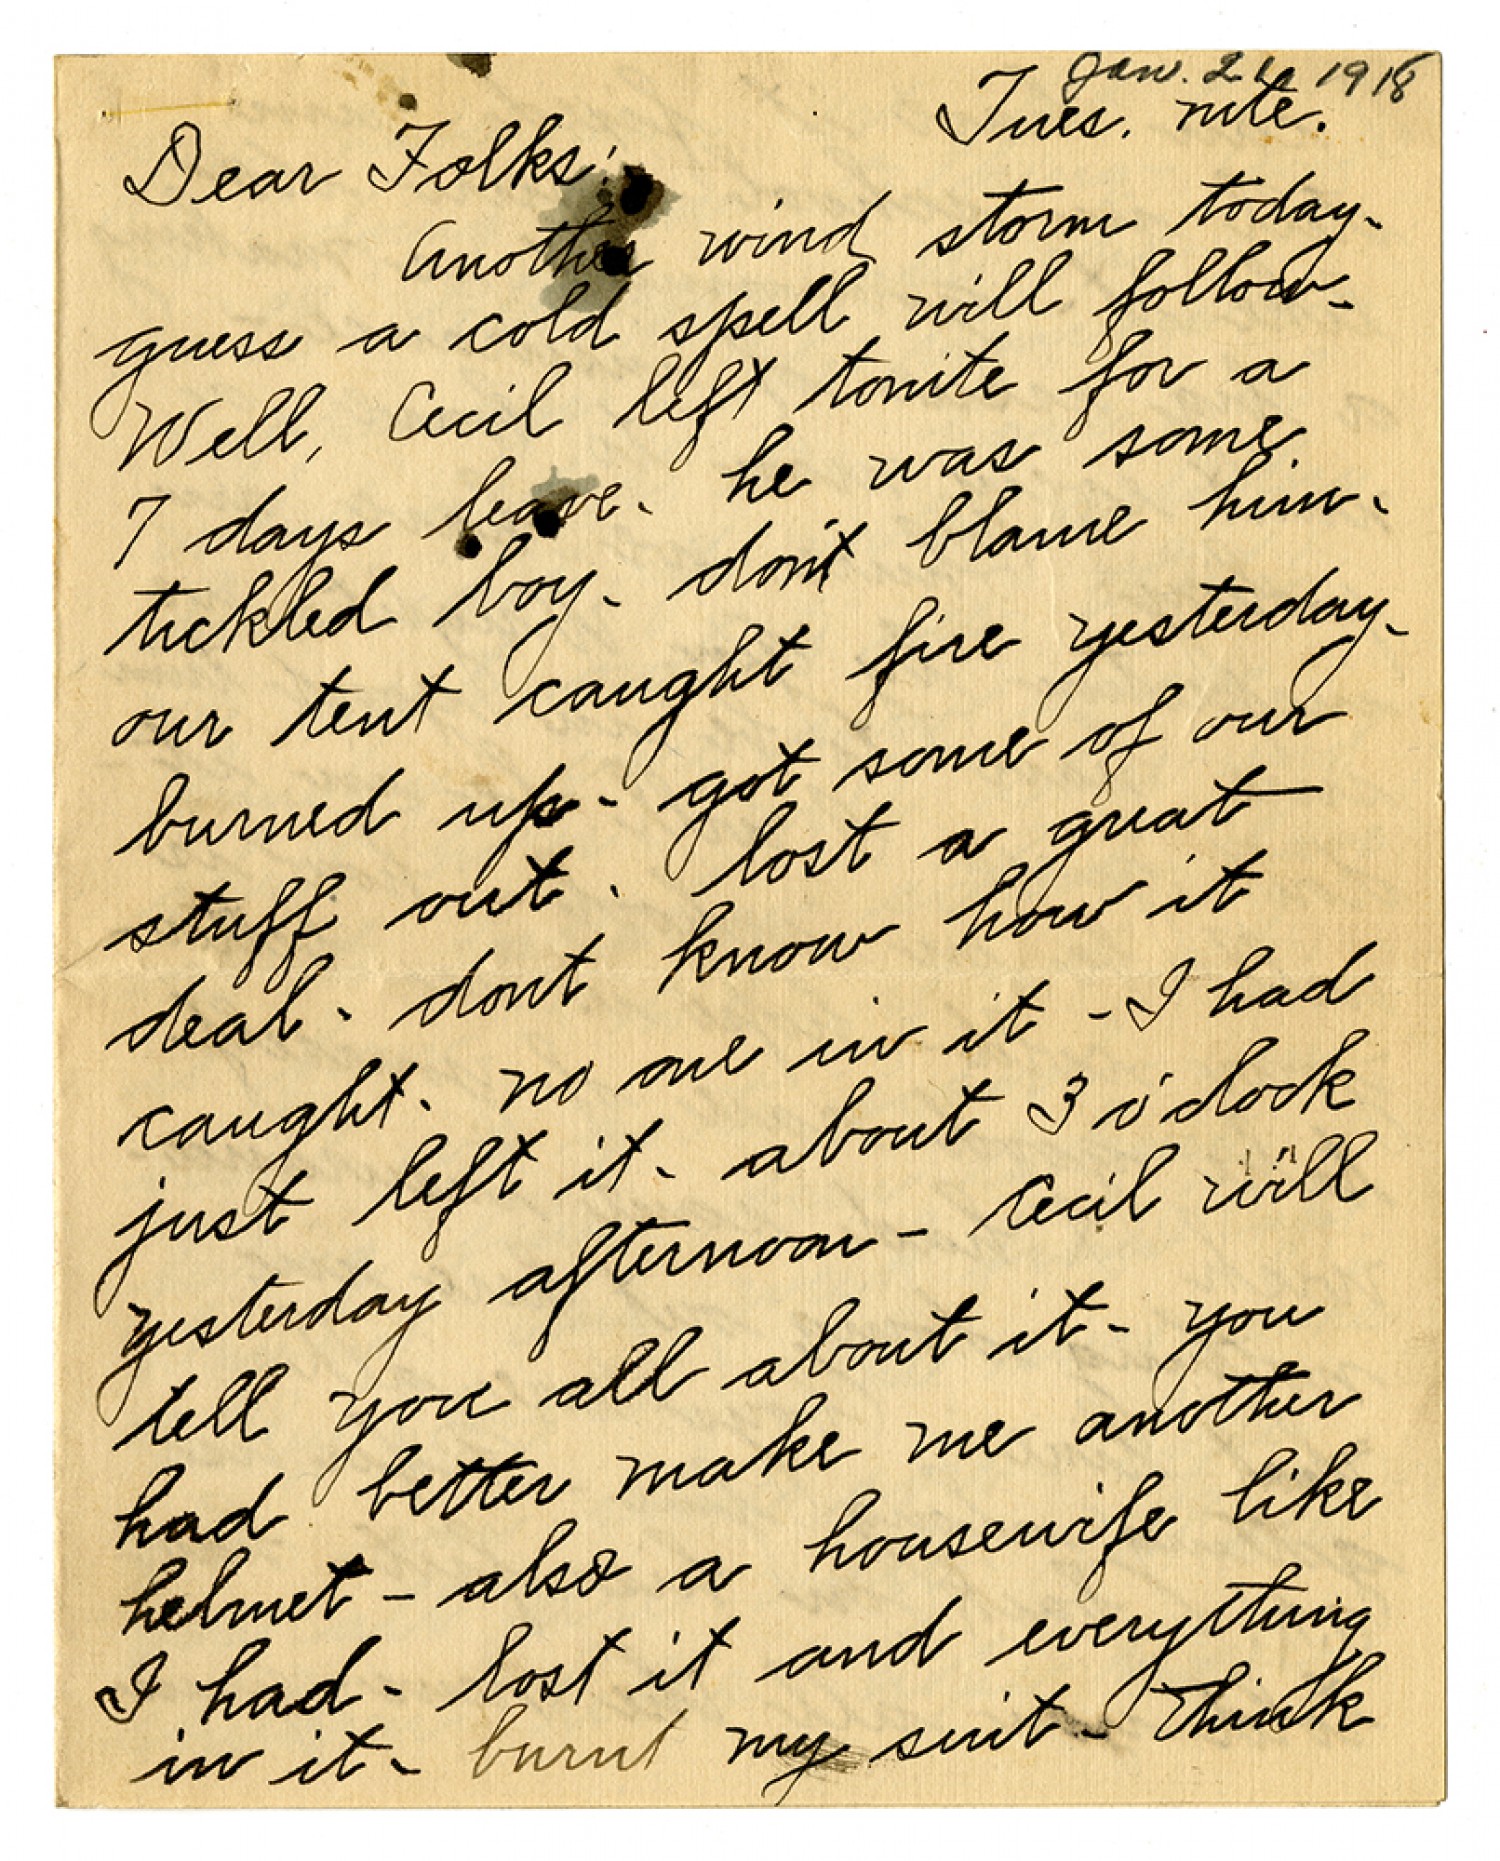 Jan. 1918
Tues. nite.
Dear Folks:
Another wind storm today-
guess a cold spell will follow-
Well, Cecil left tonite for a
7 days leave- he was some
tickled boy- don't blame him-
our tent caught fire yesterday-
burned up- got some of our
stuff out- lost a great
deal- dont know how it
caught- no one in it - I had
just left it- about 3 o'clock
yesterday afternoon- Cecil will
tell you all about it- you
had better make me another
helmet- also a housewife like
I had- lost it and everything
in it- burnt my suit- think